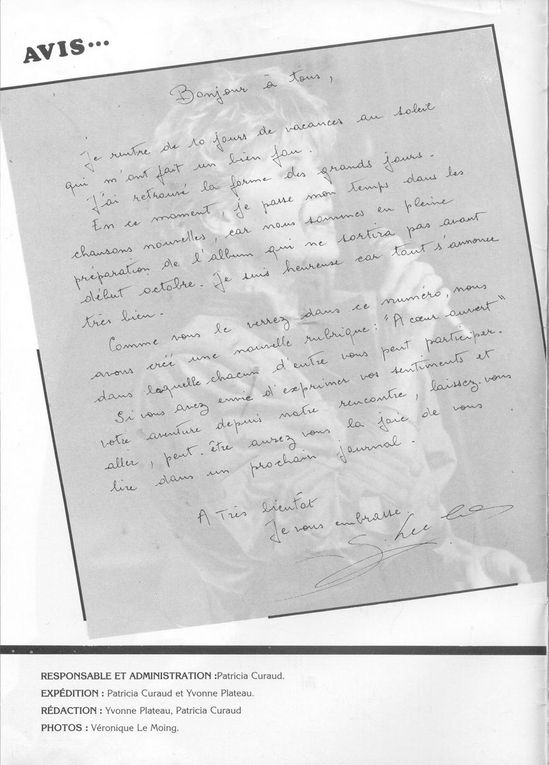 AVIS...
Bonjour à tous,
Je rentre de 10 jours de vacances au soleil
qui m'ont fait un bien fou.
J'ai retrouvé la forme des grands jours.
En ce moment, je passe mon temps dans les
chansons nouvelles, car nous sommes en pleine
préparation de l'album qui ne sortira pas avant
début octobre. Je suis heureuse car tout s'annonce
très bien.
Comme vous le verrez dans ce numéro, nous
avons créé une nouvelle rubrique : "A cœur ouvert"
dans laquelle chacun d'entre vous peut participer.
Si vous avez envie d'exprimer vos sentiments et
votre aventure depuis notre rencontre, laissez-vous
aller, peut-être aurez vous la joie de vous
lire dans un prochain journal.
A Très bientôt
Je vous embrasse.
RESPONSABLE ET ADMINISTRATION :Patricia Curaud.
EXPÉDITION : Patricia Curaud et Yvonne Plateau.
RÉDACTION : Yvonne Plateau, Patricia Curaud
PHOTOS : Véronique Le Moing.